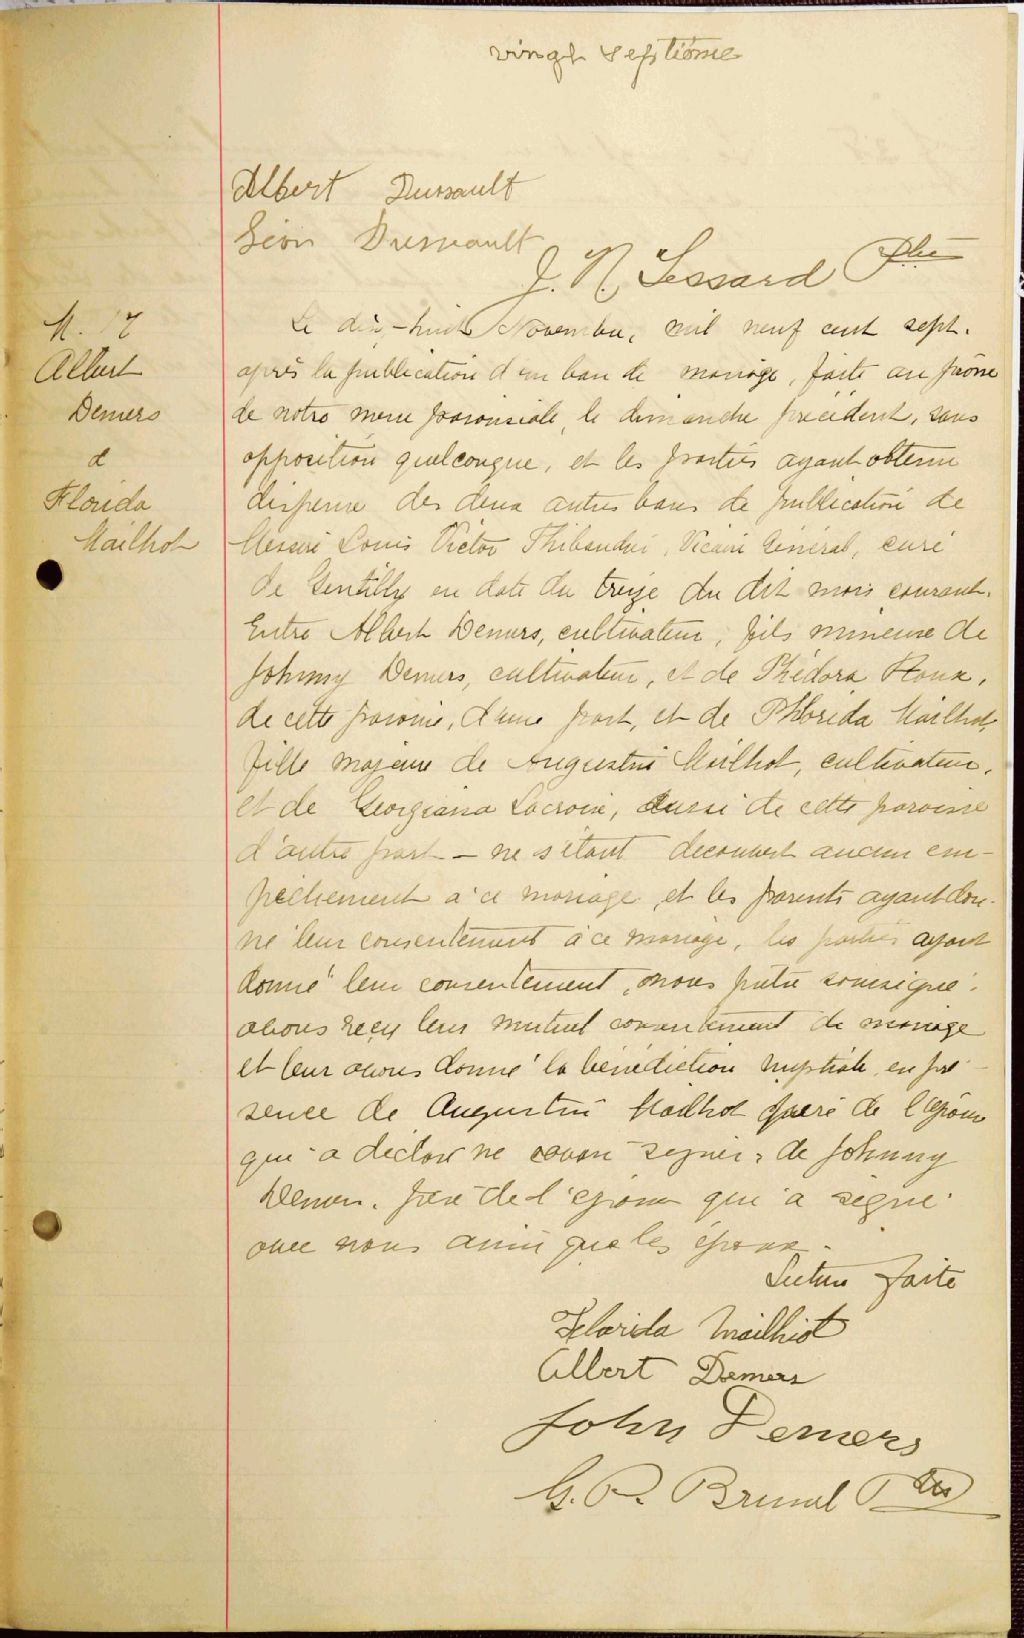 vingt septième
Albert Dussault
Léon Dussault
J. N. Lessard Ptre
M. 17
Albert
Demers
&
Florida
Mailhot
Le dix-huit Novembre, mil neuf cent sept.
après la publication d'un ban de mariage, faite au prône
de notre messe paroissiale, le dimanche précédent, sans
opposition quelconque, et les parties ayant obtenu
dispense des deux autres bans de publication de
Messire Louis Victor Thibaudier, Vicaire Général, curé
de Gentilly en date du treize du dit mois courant.
Entre Albert Demers, cultivateur, fils mineure de
Johnny Demers, cultivateur, et de Phédora Roux,
de cette paroisse, d'une part, et de Phlorida Mailhot,
fille majeure de Augustin Mailhot, cultivateur,
et de Georgianna Lacroix, aussi de cette paroisse
d'autre part – ne s'étant decouvert aucun em-
pêchement à ce mariage, et les parents ayant don-
né leur consentement à ce mariage, les parties ayant
donné leur consentement, nous prêtre soussigné,
avons reçu leur mutuel consentement de mariage
et leur avons donné la bénédiction nuptiale en pré-
sence de Augustin Mailhot père de l'épouse
qui a déclaré ne savoir signer, de Johnny
Demers, père de l'époux qui a signé
avec nous ainsi que les époux.
Lecture faite
Florida Mailhot
Albert Demers
John Demers
G. P. Brunel Ptre